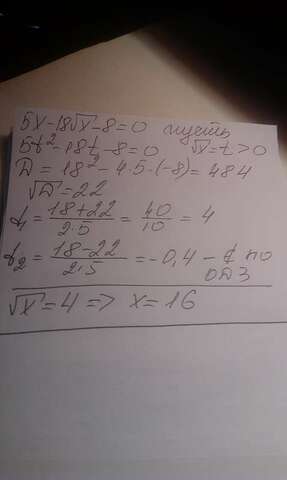 5x-18√x-8=0 пусть
5t²-18t-8=0 √x=t>0
D=18²-4·5·(-8)=484
√D=22
t₁=(18+22)/(2·5)=40/10=4
t₂=(18-22)/(2·5)=-0,4-∉ по
ОДЗ
√x=4=>x=16